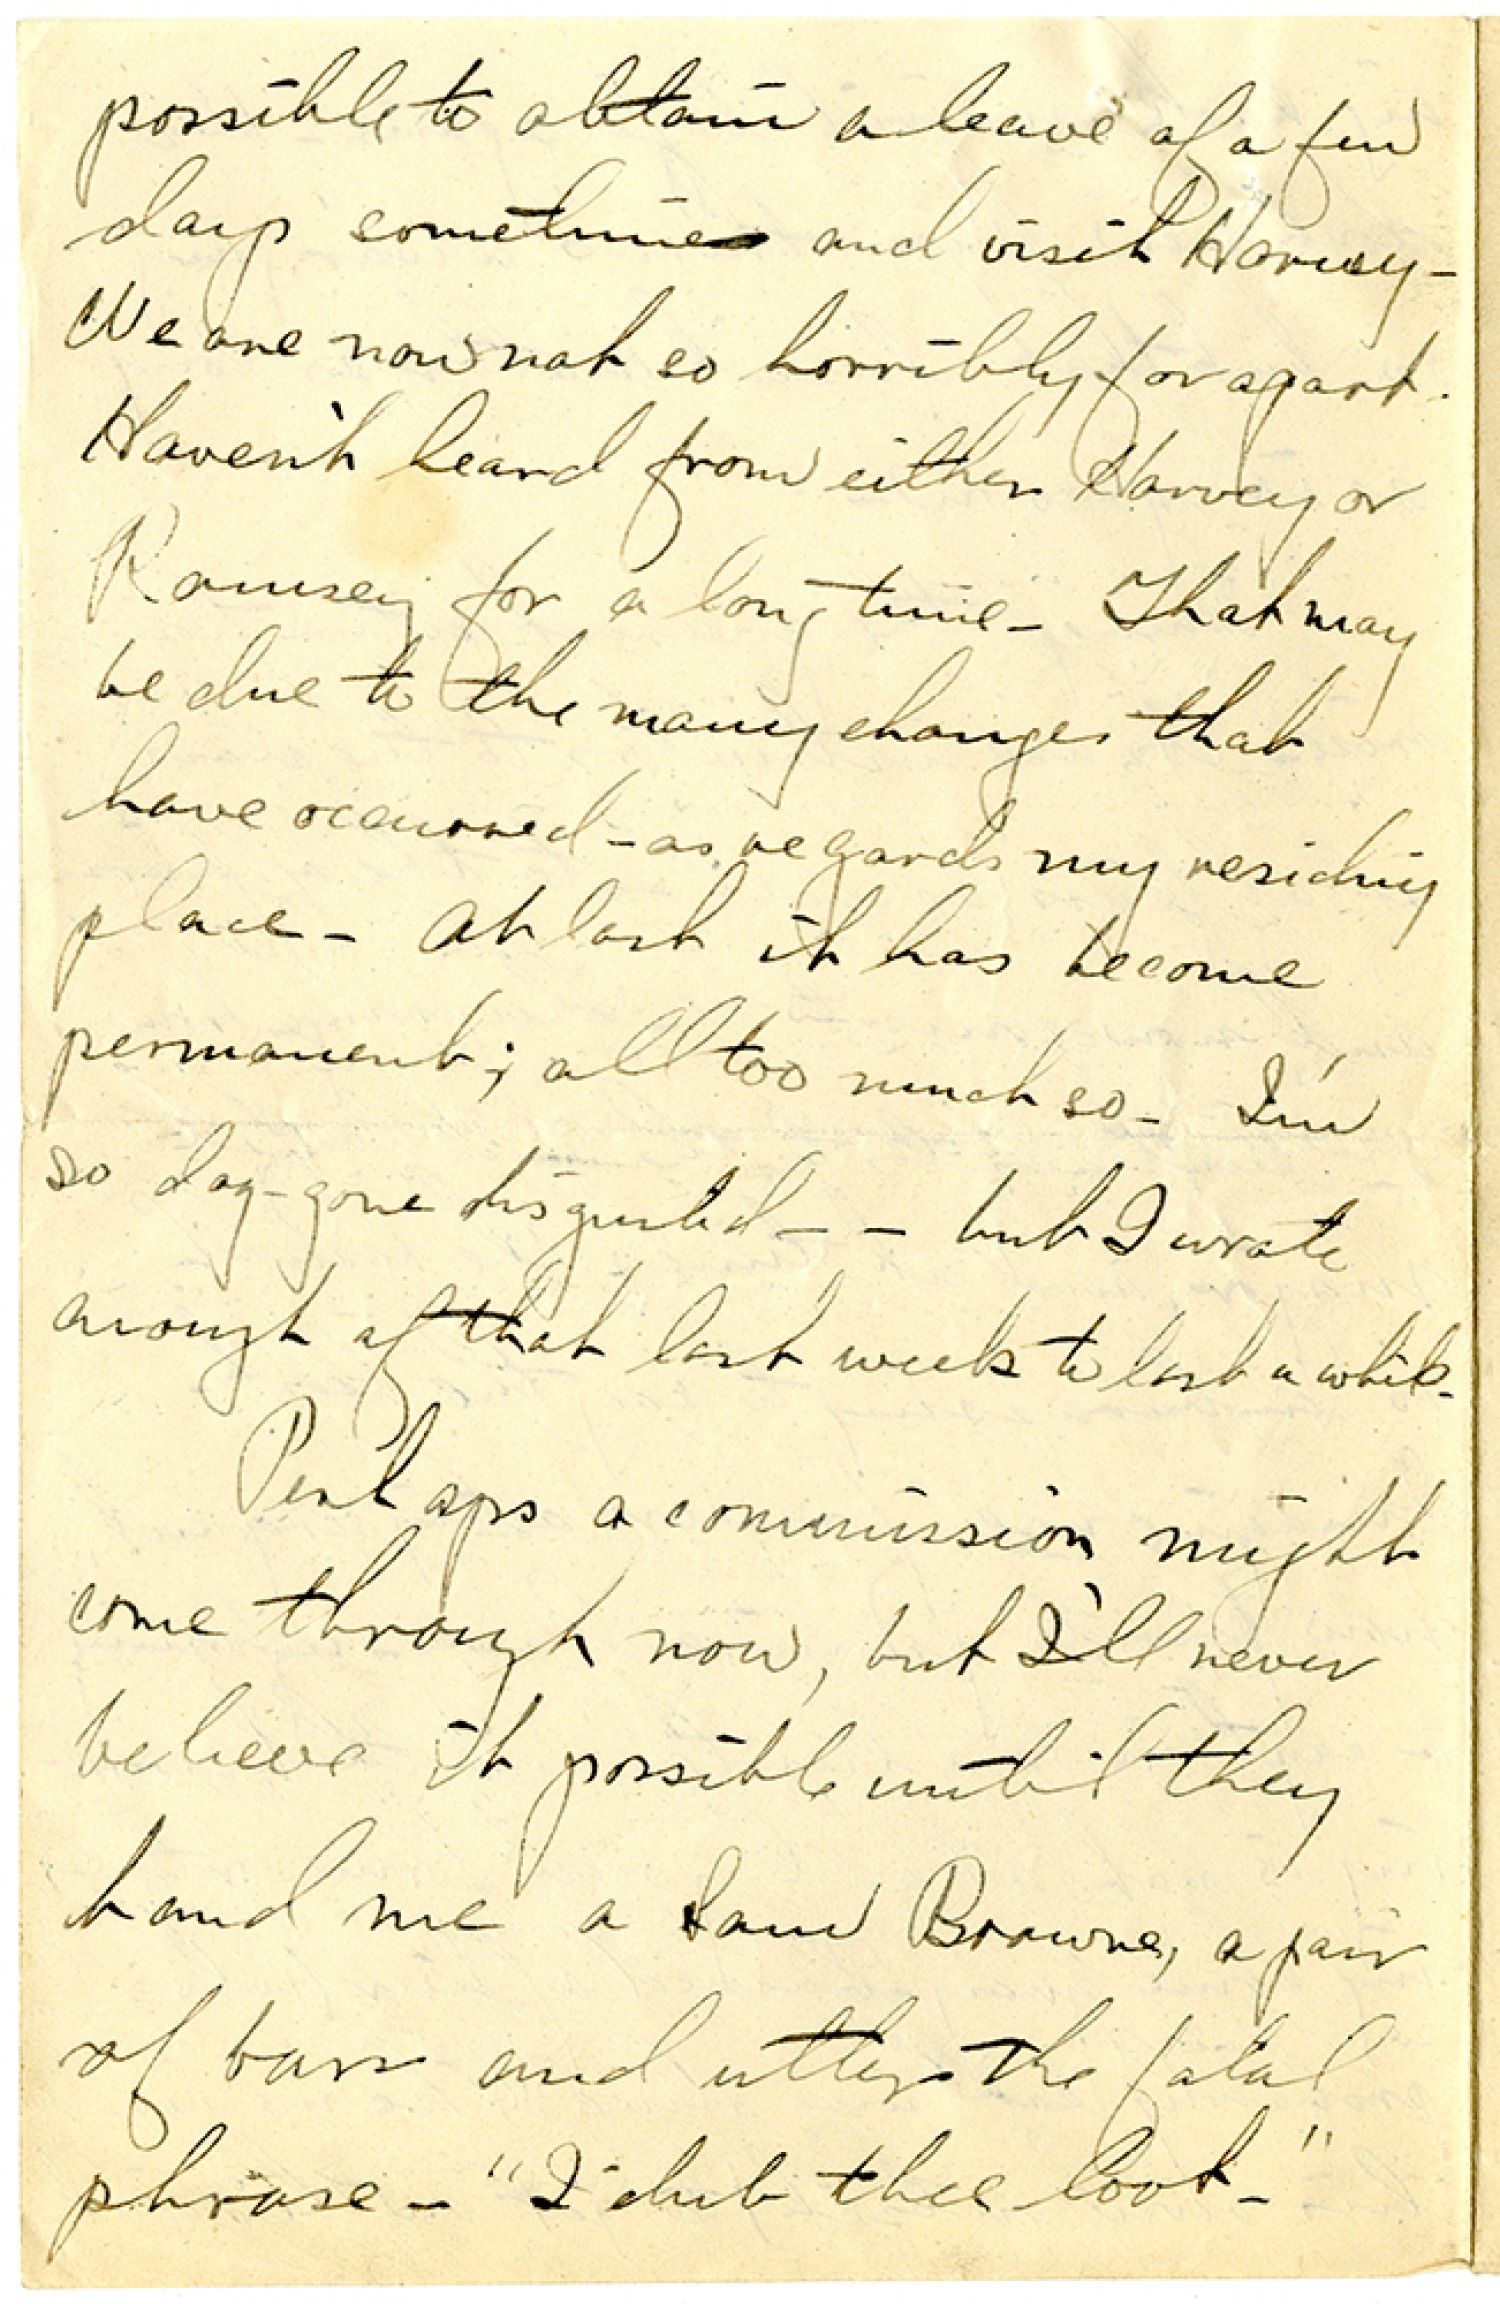 possible to obtain a leave of a few
days sometime and visit Harvey -
We are now not so horribly far apart.
Haven't heard from either Harvey or
Ramsey for a long time - That may
be due to the many changes that
have occurred - as regards my residing
place - At last it has become
permanent; all too much so - I'm
so dog-gone disgusted - - but I wrote
enough of that last week to last a while -
Perhaps a commission might
come through now, but I'll never
believe it possible until they
hand me a Sam Browne, a pair
of bars and utter the fatal
phrase - "I dub thee loot - "